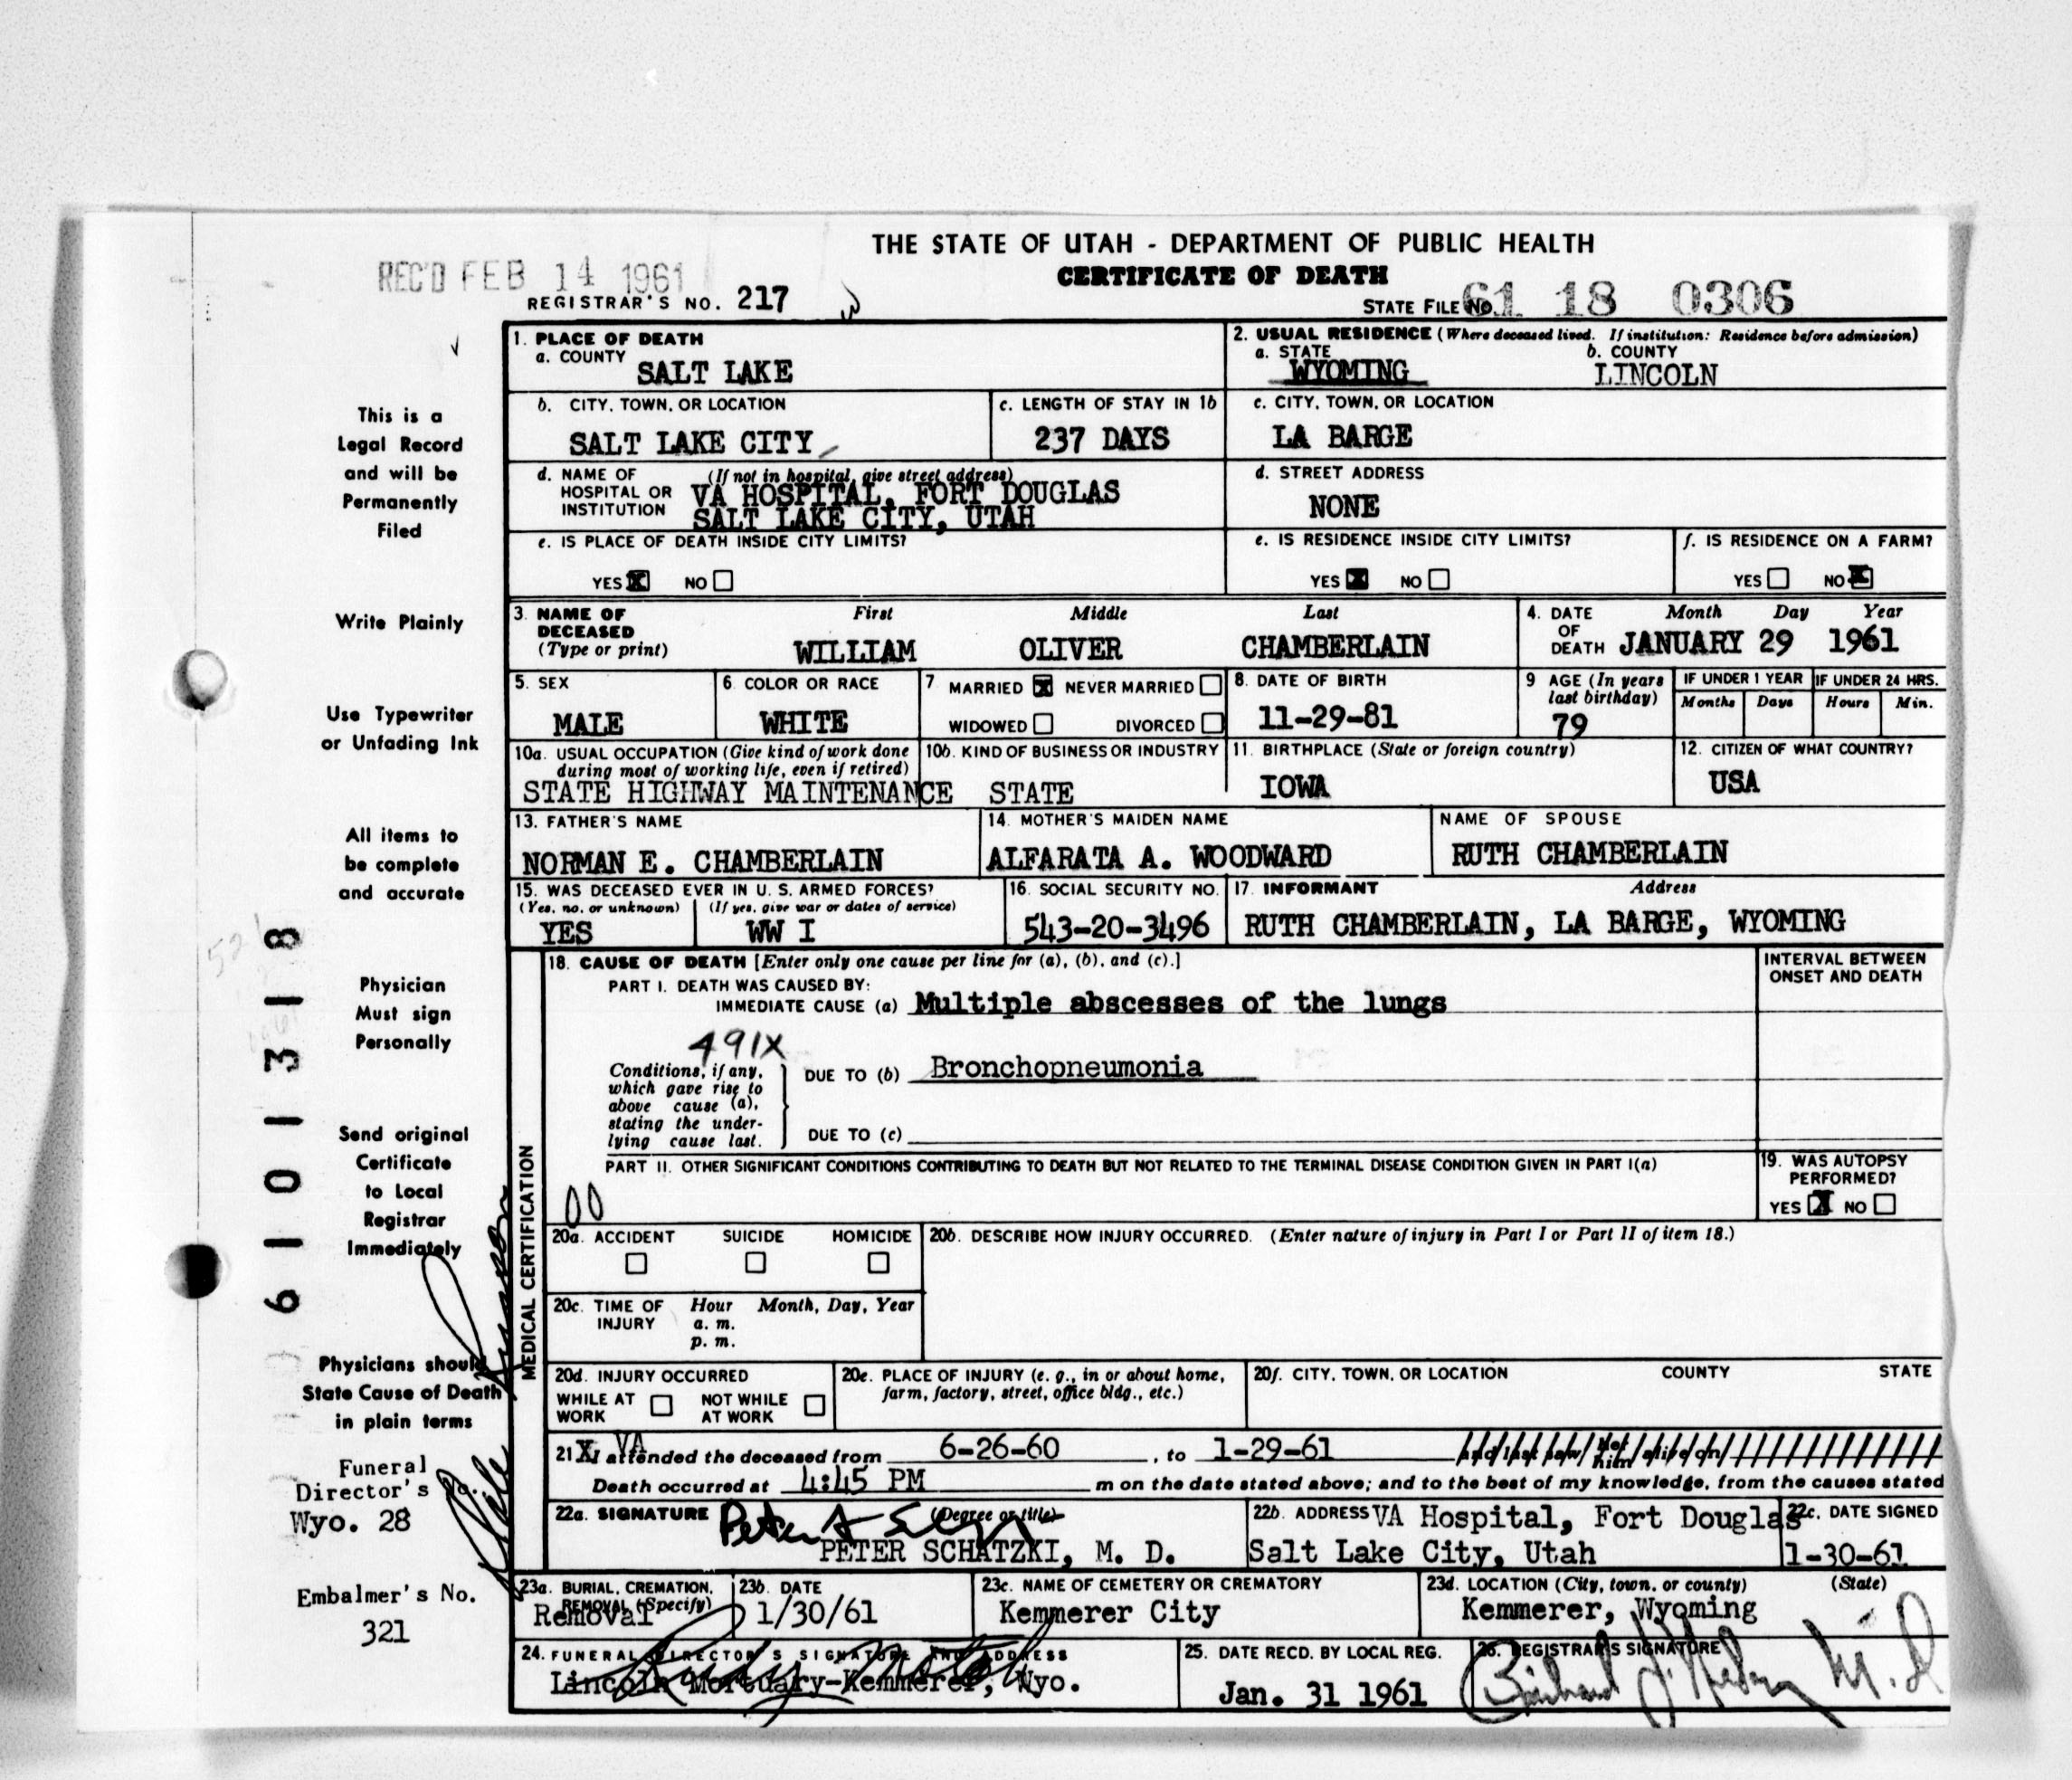 THE STATE OF UTAH - DEPARTMENT OF PUBLIC HEALTH
CERTIFICATE OF DEATH
REC'D FEB 14 1961
REGISTRAR'S NO. 217
STATE FILE NO. 61 18 0306
1. PLACE OF DEATH
a. COUNTY
SALT LAKE
2. USUAL RESIDENCE (Where deceased lived. If institution: Residence before admission)
a. STATE b. COUNTY
WYOMING LINCOLN
b. CITY, TOWN, OR LOCATION
SALT LAKE CITY
c. LENGTH OF STAY IN 1b
237 DAYS
c. CITY, TOWN, OR LOCATION
LA BARGE
d. NAME OF HOSPITAL OR INSTITUTION (If not in hospital, give street address)
VA HOSPITAL, FORT DOUGLAS
SALT LAKE CITY, UTAH
d. STREET ADDRESS
NONE
e. IS PLACE OF DEATH INSIDE CITY LIMITS?
YES X NO
e. IS RESIDENCE INSIDE CITY LIMITS?
YES X NO
f. IS RESIDENCE ON A FARM?
YES NO X
3. NAME OF DECEASED (Type or print)
First Middle Last
WILLIAM OLIVER CHAMBERLAIN
4. DATE OF DEATH Month Day Year
JANUARY 29 1961
5. SEX
MALE
6. COLOR OR RACE
WHITE
7 MARRIED X NEVER MARRIED
WIDOWED DIVORCED
8. DATE OF BIRTH
11-29-81
9 AGE (In years last birthday)
79
IF UNDER 1 YEAR IF UNDER 24 HRS.
Months Days Hours Min.
10a. USUAL OCCUPATION (Give kind of work done during most of working life, even if retired)
STATE HIGHWAY MAINTENANCE
10b. KIND OF BUSINESS OR INDUSTRY
STATE
11. BIRTHPLACE (State or foreign country)
IOWA
12. CITIZEN OF WHAT COUNTRY?
USA
13. FATHER'S NAME
NORMAN E. CHAMBERLAIN
14. MOTHER'S MAIDEN NAME
ALFARATA A. WOODWARD
NAME OF SPOUSE
RUTH CHAMBERLAIN
15. WAS DECEASED EVER IN U. S. ARMED FORCES?
(Yes, no, or unknown) (If yes, give war or dates of service)
YES WW I
16. SOCIAL SECURITY NO.
543-20-3496
17. INFORMANT Address
RUTH CHAMBERLAIN, LA BARGE, WYOMING
MEDICAL CERTIFICATION
18. CAUSE OF DEATH [Enter only one cause per line for (a), (b), and (c).]
INTERVAL BETWEEN ONSET AND DEATH
PART I. DEATH WAS CAUSED BY:
IMMEDIATE CAUSE (a) Multiple abscesses of the lungs
491X
Conditions, if any, which gave rise to above cause (a), stating the underlying cause last.
DUE TO (b) Bronchopneumonia
DUE TO (c)
PART II. OTHER SIGNIFICANT CONDITIONS CONTRIBUTING TO DEATH BUT NOT RELATED TO THE TERMINAL DISEASE CONDITION GIVEN IN PART I(a)
00
19. WAS AUTOPSY PERFORMED?
YES X NO
20a. ACCIDENT SUICIDE HOMICIDE
20b. DESCRIBE HOW INJURY OCCURRED. (Enter nature of injury in Part I or Part II of item 18.)
20c. TIME OF INJURY Hour Month, Day, Year
a. m.
p. m.
20d. INJURY OCCURRED
WHILE AT WORK NOT WHILE AT WORK
20e. PLACE OF INJURY (e. g., in or about home, farm, factory, street, office bldg., etc.)
20f. CITY, TOWN, OR LOCATION COUNTY STATE
21. VA attended the deceased from 6-26-60, to 1-29-61 and last saw her him alive on
Death occurred at 4:45 PM m on the date stated above; and to the best of my knowledge, from the causes stated
22a. SIGNATURE (Degree or title)
PETER SCHATZKI, M. D.
22b. ADDRESS VA Hospital, Fort Douglas
Salt Lake City, Utah
22c. DATE SIGNED
1-30-61
23a. BURIAL, CREMATION, REMOVAL (Specify)
Removal
23b. DATE
1/30/61
23c. NAME OF CEMETERY OR CREMATORY
Kemmerer City
23d. LOCATION (City, town, or county) (State)
Kemmerer, Wyoming
24. FUNERAL DIRECTOR'S SIGNATURE AND ADDRESS
Lincoln Mortuary-Kemmerer, Wyo.
25. DATE RECD. BY LOCAL REG.
Jan. 31 1961
26. REGISTRAR'S SIGNATURE
M.D
This is a
Legal Record
and will be
Permanently
Filed
Write Plainly
Use Typewriter
or Unfading Ink
All items to
be complete
and accurate
Physician
Must sign
Personally
Send original
Certificate
to Local
Registrar
Immediately
Physicians should
State Cause of Death
in plain terms
Funeral
Director's No.
Wyo. 28
Embalmer's No.
321
6 1 0 1 3 1 8